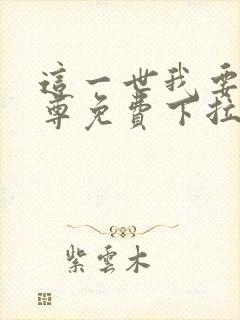 這一世我要
尊免費下拉
紫雲木